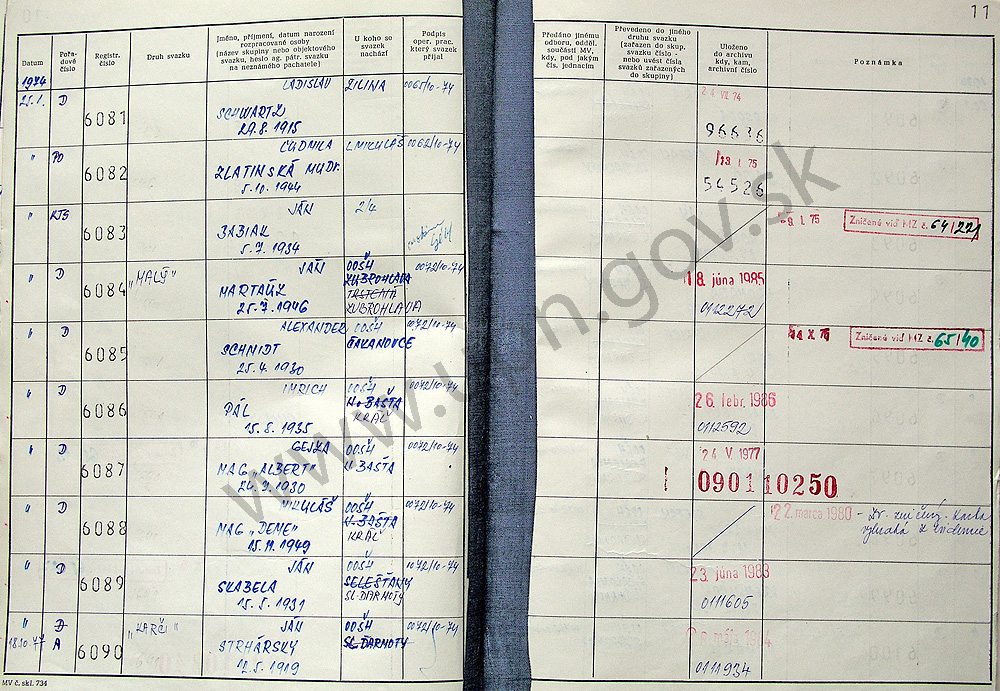 11
Datum
Pořadové číslo
Registr. číslo
Druh svazku
Jméno, příjmení, datum narození
rozpracované osoby
(název skupiny nebo objektového
svazku, heslo ag. pátr. svazku
na neznámého pachatele)
U koho se
svazek
nachází
Podpis
oper. prac.
který svazek
přijal
Předáno jinému
odboru, odděl.
součásti MV,
kdy, pod jakým
čís. jednacím
Převedeno do jiného
druhu svazku
(zařazen do skup.
svazku číslo -
nebo uvést čísla
svazků zařazených
do skupiny)
Uloženo
do archivu
kdy, kam,
archivní číslo
Poznámka
1974
25.1. D 6081 LADISLAV ŽILINA 0065/10-74
SCHWARTZ
29.8. 1915
24 VII 74
96636
" PO 6082 ĽUDMILA L. MIKULÁŠ 0062/10-74
ZLATINSKÁ MUDr.
5.10. 1944
I 75
54526
" 6083 JÁN 2/4
BABIAK
5.7. 1934
9. I. 75 Zničené viď MZ č. 64/221
" D 6084 "MALÝ" JÁN OOŠ4 0072/10-74
MARTAŮZ ZUBROHLAVA
25.7. 1946 TRSTENÁ
ZUBROHLAVA
18. júna 1985
0112272/
" D 6085 ALEXANDER OOŠ4 0072/10-74
SCHMIDT ČAKANOVCE
25.4. 1930
X 76 Zničené viď MZ č. 65/40
" D 6086 IMRICH OOŠ4 0072/10-74
PÁL H. BAŠTA
15.8. 1935 KRÁĽ
26. febr. 1986
0112592
" D 6087 GEJZA OOŠ4 0072/10-74
MAG "ALBERT" N. BAŠTA
24.9. 1930
24 V. 1977
0901 10250
" D 6088 MIKULÁŠ OOŠ4 0072/10-74
MAG. "DEME" N. BAŠTA
15.11. 1949 KRÁĽ
22. marca 1980 - zničený. Karta
vybratá z evidencie
" D 6089 JÁN OOŠ4 0072/10-74
SKABELA SELEŠŤANY
15.5. 1931 SL. ĎARMOTY
23. júna 1983
0111605
" D 6090 "KARČI" JÁN OOŠ4 0072/10-74
18.10.77 A STRHÁRSKY SL. ĎARMOTY
12.5. 1919
mája
0111934
MV č. skl. 734
www.upn.gov.sk